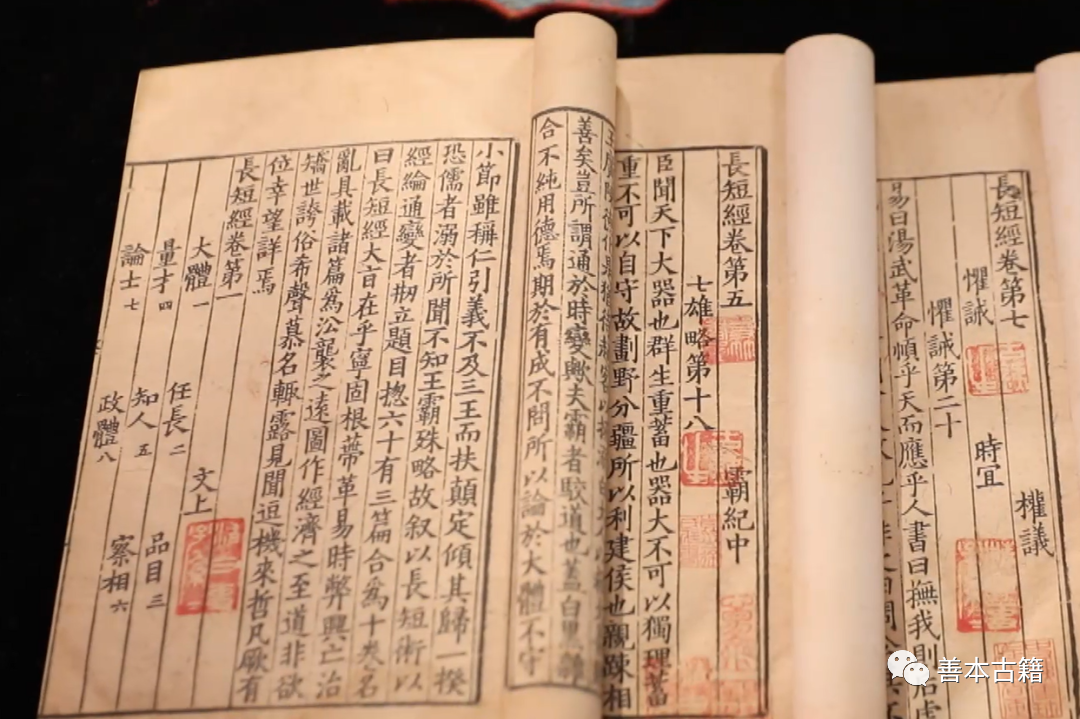 長短經卷第七 權議
懼誡 時宜
懼誡第二十
易曰湯武革命順乎天而應乎人書曰撫我則后虐
長短經卷第五 霸紀中
七雄略第十八
臣聞天下大器也群生重蓄也器大不可以獨理蓄
重不可以自守故劃野分疆所以利建侯也親踈相
善矣豈所謂通於時變歟夫霸者駮道也蓋白黑雜
合不純用德焉期於有成不問所以論於大體不守
小節雖稱仁引義不及三王而扶顛定傾其歸一揆
恐儒者溺於所聞不知王霸殊略故叙以長短術以
經綸通變者剏立題目揔六十有三篇合爲十卷名
曰長短經大旨在乎寧固根蔕革易時弊興亡治
亂具載諸篇爲沿襲之遠圖作經濟之至道非欲
矯世誇俗希聲慕名輙露見聞逗機來哲凡厥有
位幸望詳焉
長短經卷第一 文上
大體一 任長二 品目三
量才四 知人五 察相六
論士七 政體八
善本古籍